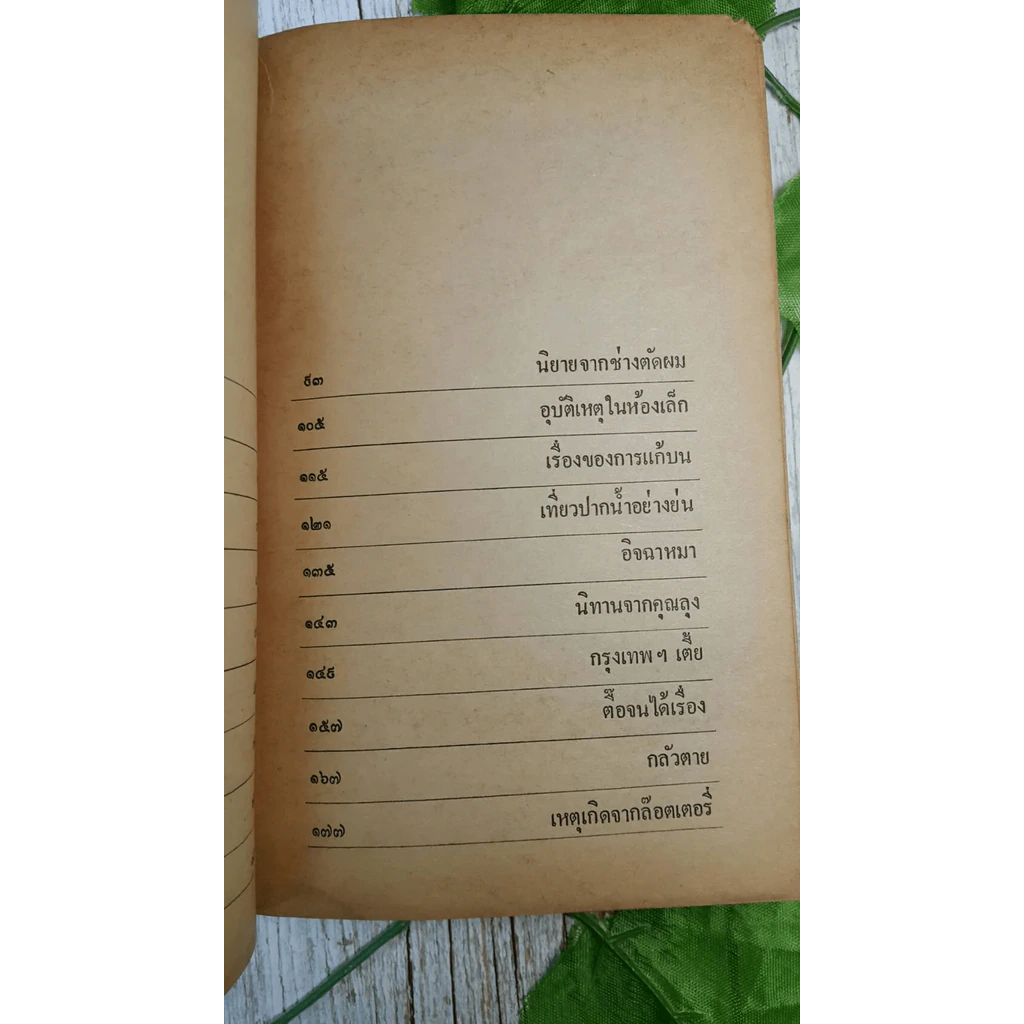 ๙๓ นิยายจากช่างตัดผม
๑๐๕ อุบัติเหตุในห้องเล็ก
๑๑๕ เรื่องของการแก้บน
๑๒๑ เที่ยวปากน้ำอย่างย่น
๑๓๕ อิจฉาหมา
๑๔๓ นิทานจากคุณลุง
๑๔๙ กรุงเทพ ๆ เตี้ย
๑๕๗ ตื๊อจนได้เรื่อง
๑๖๗ กลัวตาย
๑๗๗ เหตุเกิดจากล๊อตเตอรี่